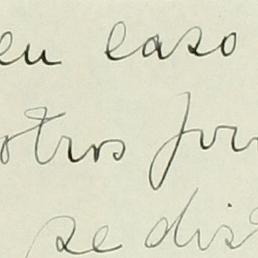 en caso
otros jur
se dis